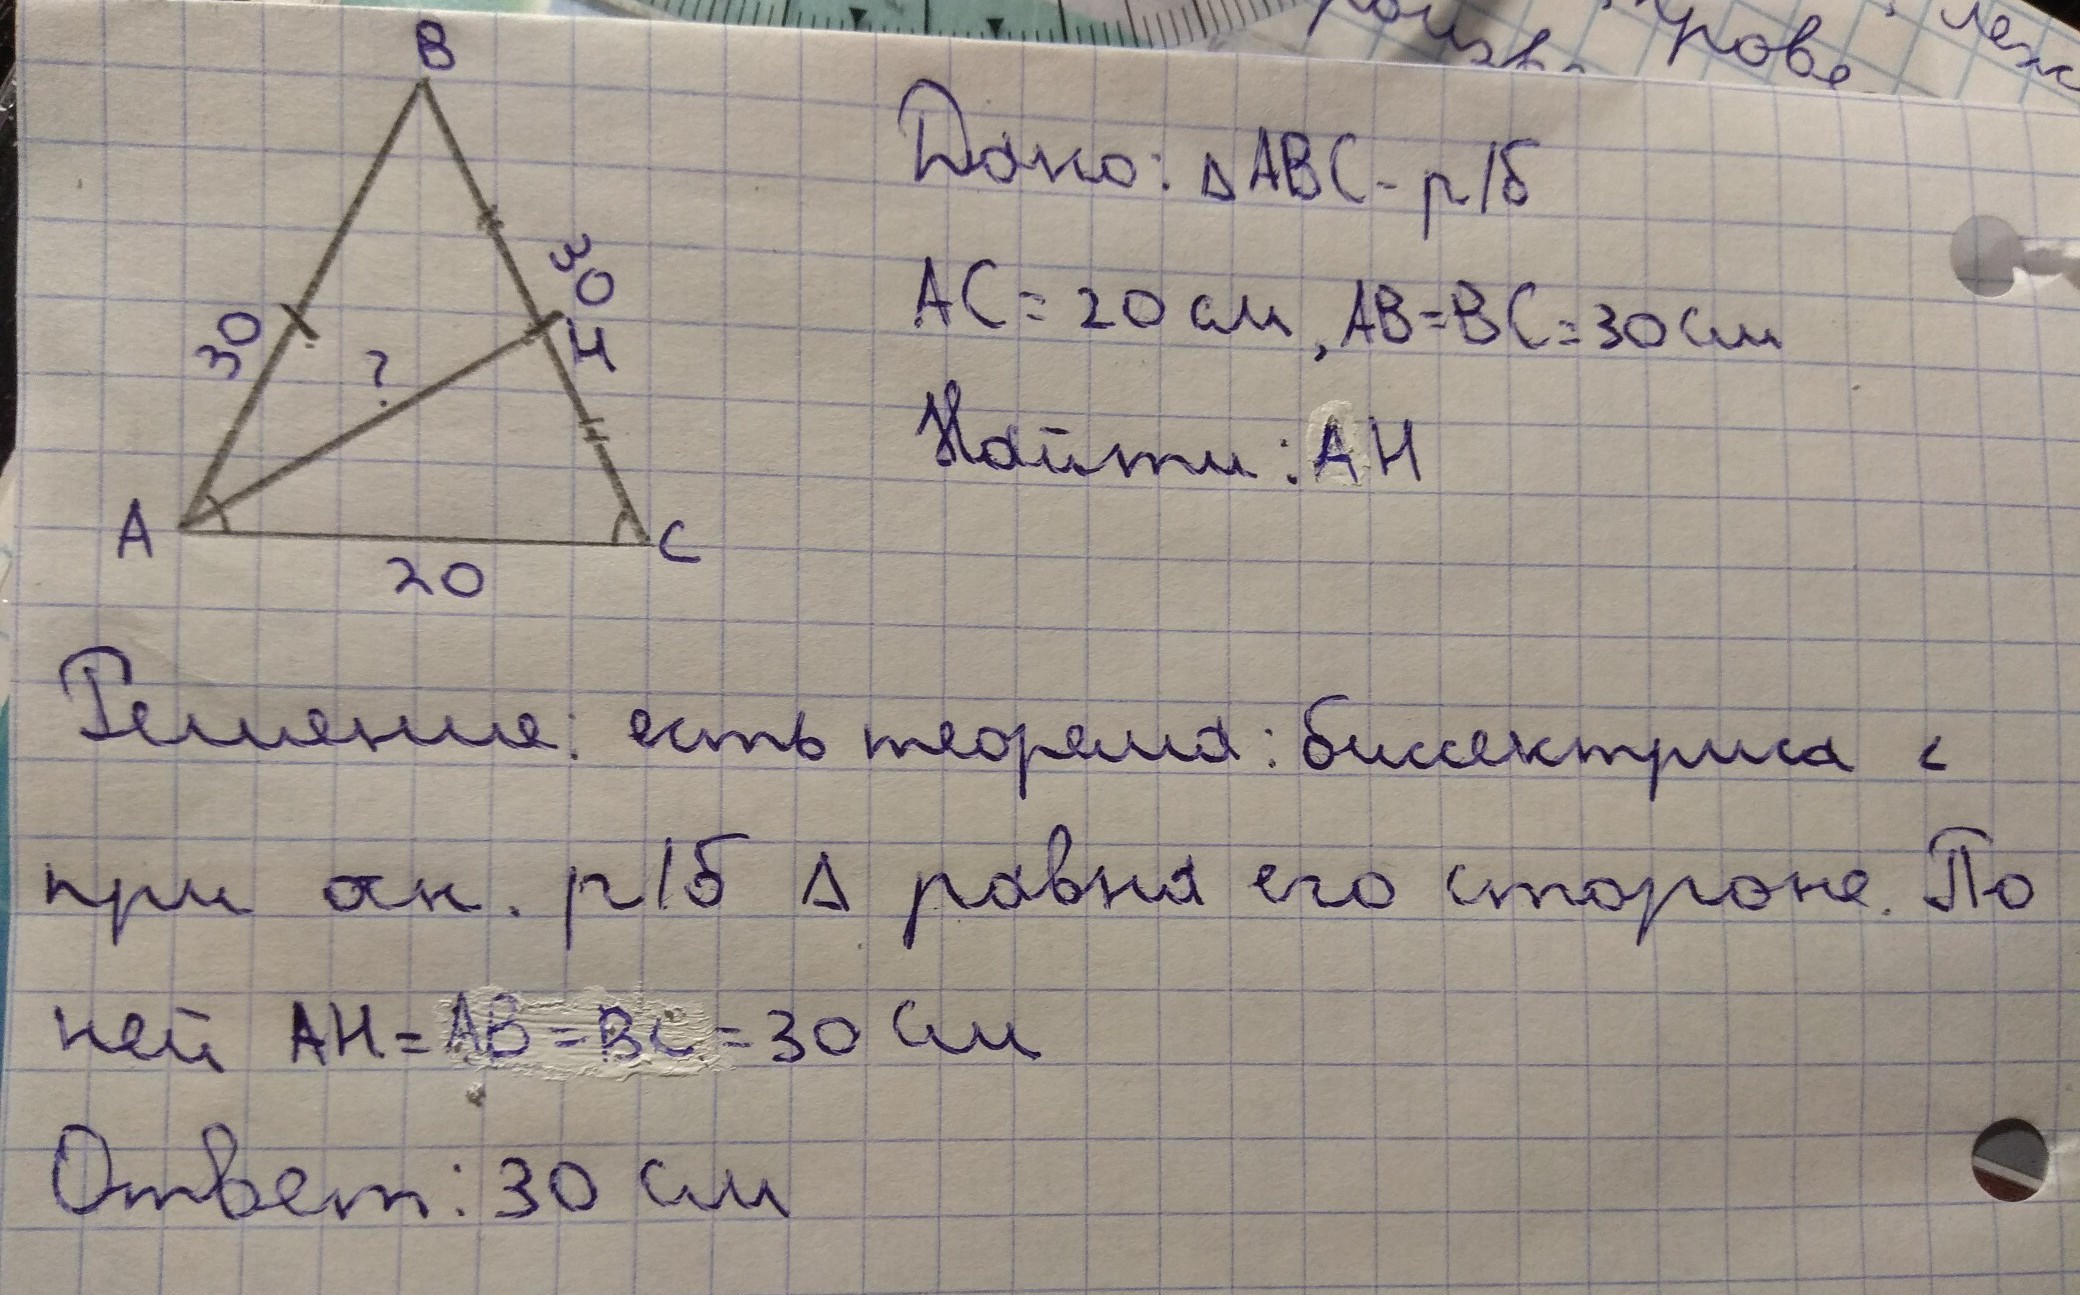 произв прове леж
B
Дано: △ABC - р/б
30
30
AC = 20 см, AB=BC=30см
H
?
Найти: AH
A
C
20
Решение: есть теорема: биссектриса <
при осн. р/б △ равна его стороне. По
ней AH = AB=BC=30 см
Ответ: 30 см